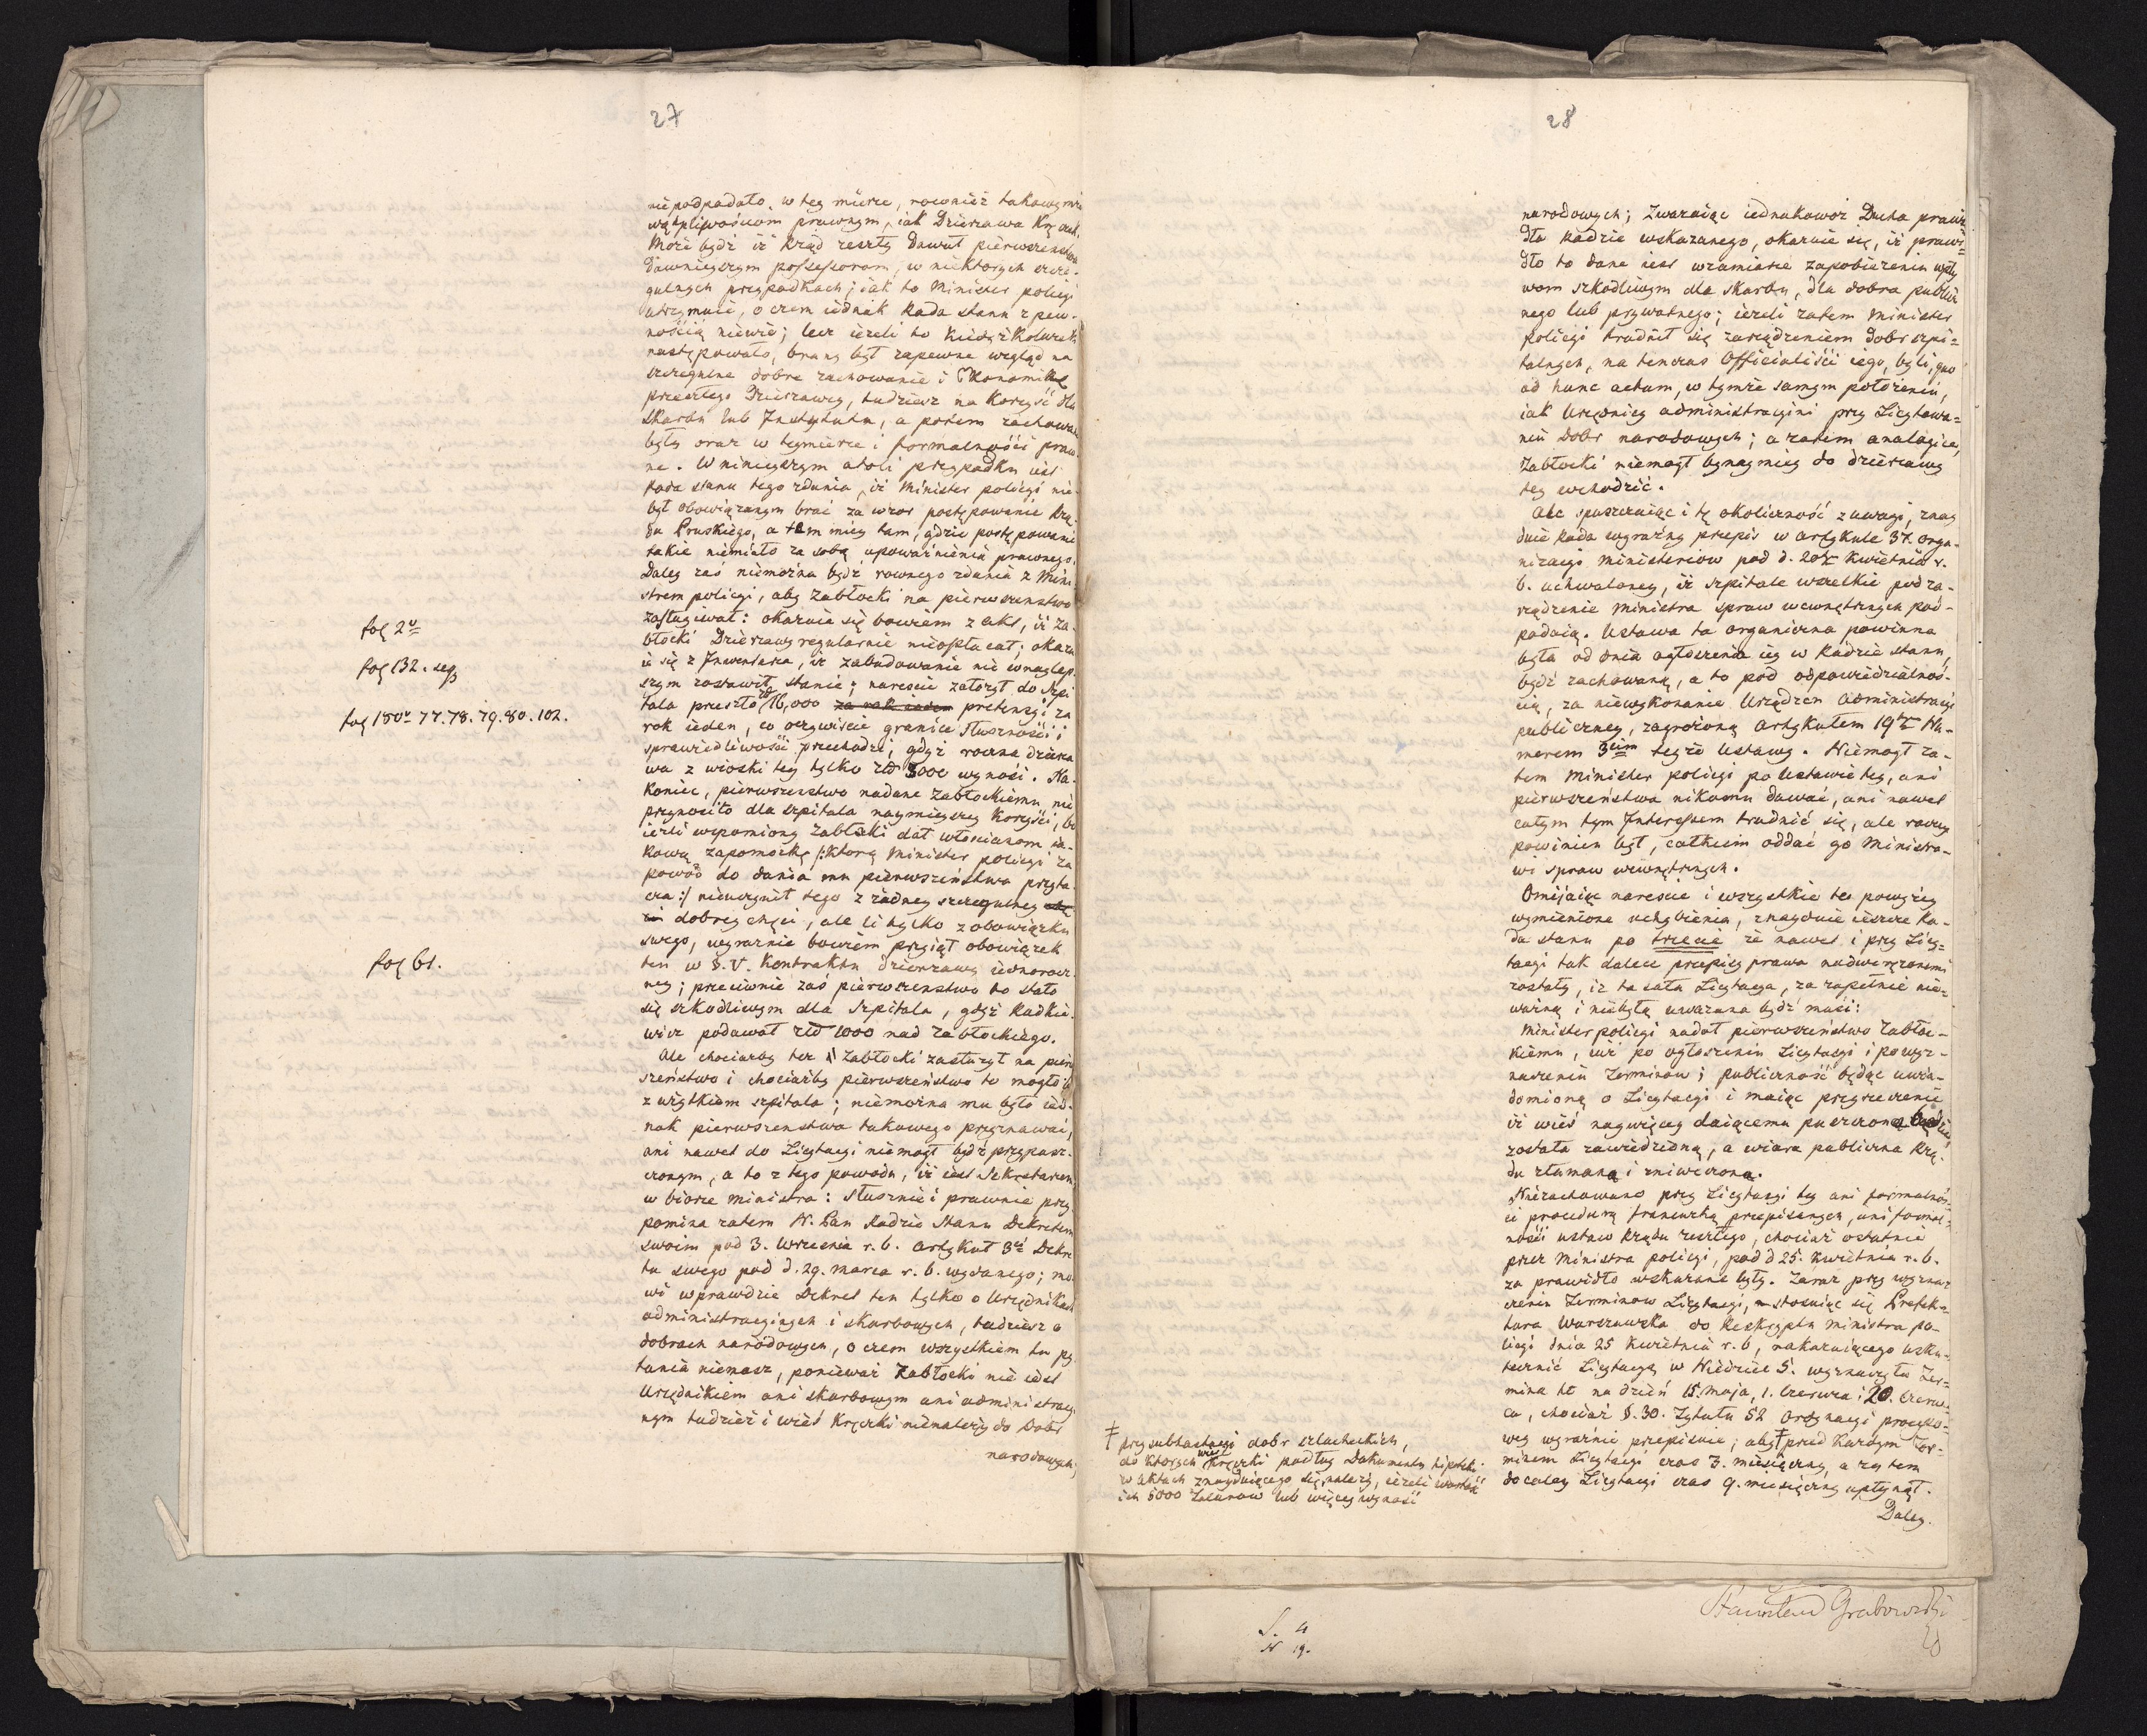 27
nie podpadało, w tey mierze, rownież takowym
wątpliwościom prawnym, iak Dzierzawa Kręczek.
Może bydź iż Rząd zeszły dawał pierwszenstwo
dawnieyszym possessorom, w niektorych szcze-
gulnych przypadkach; iak to Minister policyi
utrzymuie, o czem iednak Rada Stanu z pew-
nością niewie; lecz ieżeli to kiedyżkolwiek
nastepowało, brany był zapewne wzgląd na
szczegulne dobre zachowanie i Ekonomikę
przeszłego Dzierzawcy, tudziesz na korzyść dla
Skarbu lub Instytutu, a potem zachowane
były oraz w teymierze i formalności praw-
ne. W ninieyszym atoli przypadku iest
Rada Stanu tego zdania, iż Minister policyi nie-
był obowiązanym brać za wzor postępowanie Rzą-
du Pruskiego, a tem mniey tam, gdzie postępowanie
takie niemiało za sobą upoważnienia prawnego.
Daley zaś niemożna bydź rownego zdania z Mini-
strem policyi, aby Zabłocki na pierwszenstwo
zasługiwał: okazuie się bowiem z akt, iż Za-
fol 2do
błocki Dzierzawy regularnie nieopłacał; okazu
ie się z Inwentarza, iż zabudowania nie w naylep-
fol 132. seq
szym zostawił stanie; nareszcie założył do Szpi
tala preszło złt 16,000 za rok ieden pretensyi za
fol 150. 77. 78. 79. 80. 102.
rok ieden, co oczywiście granice słuszności i
sprawiedliwości przechodzi, gdyż roczna dzierza
wa z wioski tey tylko złt 5000 wynosi. Na-
koniec, pierwszenstwo nadane Zabłockiemu nie
przynosiło dla szpitala naymnieyszey korzyści, bo
ieżeli wspomniony Zabłocki dał włościanom ta-
kową zapomożkę /:którą Minister policyi za
powod do dania mu pierwszeństwa przyta-
cza:/ nieuczynił tego z żadney szczegulney
dobrey chęci, ale li tylko z obowiązku
swego, wyraznie bowiem przyiął obowiązek
fol 61.
ten w §. V. Kontraktu dzierzawy iednorocz-
ney; przeciwnie zaś pierwszenstwo to stało
się szkodliwym dla Szpitala, gdyż Radkie-
wicz podawał złt 1000 nad Zabłockiego.
Ale chociażby też Zabłocki zasłużył na pierw
szeństwo i chociażby pierwszeństwo to mogło
z użytkiem szpitala; niemożna mu było ied-
nak pierwszenstwa takowego przyznawać,
ani nawet do Licytacyi niemogł bydź przypusz-
czonym, a to z tego powodu, iż iest Sekretarzem
w biorze Ministra: słusznie i prawnie przy
pomina zatem N. Pan Radzie Stanu Dekretem
swoim pod 3. Września r. b. Artykuł 3ci Dekre
tu swego pod d. 29. Marca r. b. wydanego; mo-
wi wprawdzie Dekret ten tylko o Urzędnikach
administracyinych i skarbowych, tudziesz o
dobrach narodowych, o czem wszystkiem tu py
tania niemasz, ponieważ Zabłocki nie iest
Urzędnikiem ani skarbowym ani administracyi
nym tudzież i wieś Kręczki nienależy do Dobr
narodowych;
28
narodowych; Zwazaiąc iednakowoż Ducha prawi-
dła Radzie wskazanego, okazuie się, iż prawi-
dło to dane iest w zamiarze zapobieżenia wpły
wom szkodliwym dla skarbu, dla dobra publicz
nego lub prywatnego; ieżeli zatem Minister
policyi trudnił się zarządzeniem dobr szpi-
talnych, na tenczas Officialiści iego, byli, quo
ad hunc actum, w tymże samym położeniu,
iak Urzędnicy administracyini przy Licytowa-
niu Dobr narodowych; a zatem analogice,
Zabłocki niemogł bynaymniey do dzierzawy
tey wchodzić.
Ale spuszczaiąc i tę okoliczność z uwagi, znay
duie Rada wyraźny przepis w Artykule 37. orga-
nizacyi Ministeriow pod d. 20go Kwietnia r.
b. uchwaloney, iż szpitale wszelkie pod za-
rządzenie Ministra Spraw wewnętrznych pod-
padaią. Ustawa ta organiczna powinna
była od dnia ogłoszenia iey w Radzie Stanu,
bydź zachowaną, a to pod odpowiedzialnoś-
cią, za niewykonanie Urządzen administracyi
publiczney, zagrożoną Artykułem 19go Nu-
merem 3cim teyże Ustawy. Niemogł za-
tem Minister policyi po Ustawie tey, ani
pierwszeństwa nikomu dawać, ani nawet
całym tym Interessem trudnić się, ale raczey
powinien był, całkiem oddać go Ministro-
wi spraw wewnętrznych.
Omijaiąc nareszcie i wszystkie te powyżey
wymienione uchybienia, znayduie ieszcze Ra-
da Stanu po trzecie że nawet i przy Licy-
tacyi tak dalece przepisy prawa nadwerężonemi
zostały, iż ta cała Licytacya, za zupełnie nie-
ważną i niebyłą uważana bydź musi:
Minister policyi nadał pierwszeństwo Zabłoc-
kiemu, iuż po ogłoszeniu Licytacyi i po wyz-
naczeniu Terminow; publiczność będąc uwia-
domioną o Licytacyi i maiąc przyrzeczenie
iż wieś naywięcey daiącemu puszczoną będzie
została zawiedzioną, a wiara publiczna Rzą-
du złamaną i zniweczoną.
Niezachowano przy Licytacyi tey ani formalnoś-
ci procedurą francuzką przepisanych, ani formal-
ności ustaw Rządu zeszłego, chociaż ostatnie
przez Ministra policyi, pod d 25. Kwietnia r. b.
za prawidło wskazane były. Zaraz przy wyzna-
czeniu Terminow Licytacyi, stosuiąc się Prefek-
tura Warszawska do Reskryptu Ministra po-
licyi dnia 25 Kwietnia r. b, nakazuiącego usku-
tecznić Licytacyą w Niedziele 5. wyznaczyła Ter-
mina te na dzień 15. Maja, 1. Czerwca i 20. Czerw-
ca, chociaż §. 30. Tytułu 52 Ordynacyi processo-
wey wyraźnie przepisuie; aby ‡ przed każdym Ter-
minem Licytacyi czas 3. miesięczny, a zatem
do całey Licytacyi czas 9. miesięczny upłynął.
Daley.
‡ przy subhastacyi dobr szlacheckich,
do ktorych wieś Kręczki podług Dokumentu hipotek.
w aktach znayduiącego się należy, ieżeli wartość
ich 5000 Talarow lub więcey wynosi
S. 4
N 19.
Stanisław Grabowski